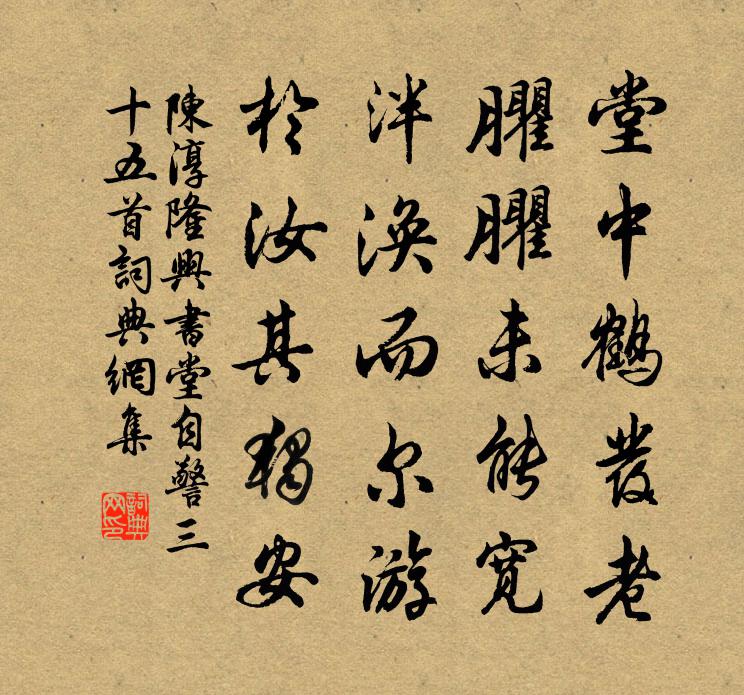 堂中鶴發老
臞臞未能寬
泮渙而尔游
於汝其獨安
陳淳隆興書堂自警三
十五首詞典網集
詞典網印